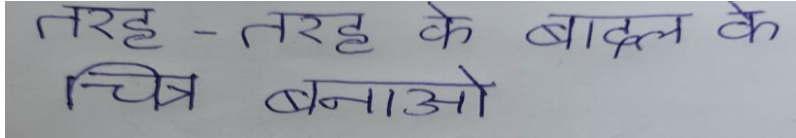 तरह - तरह के बादल के
चित्र बनाओ